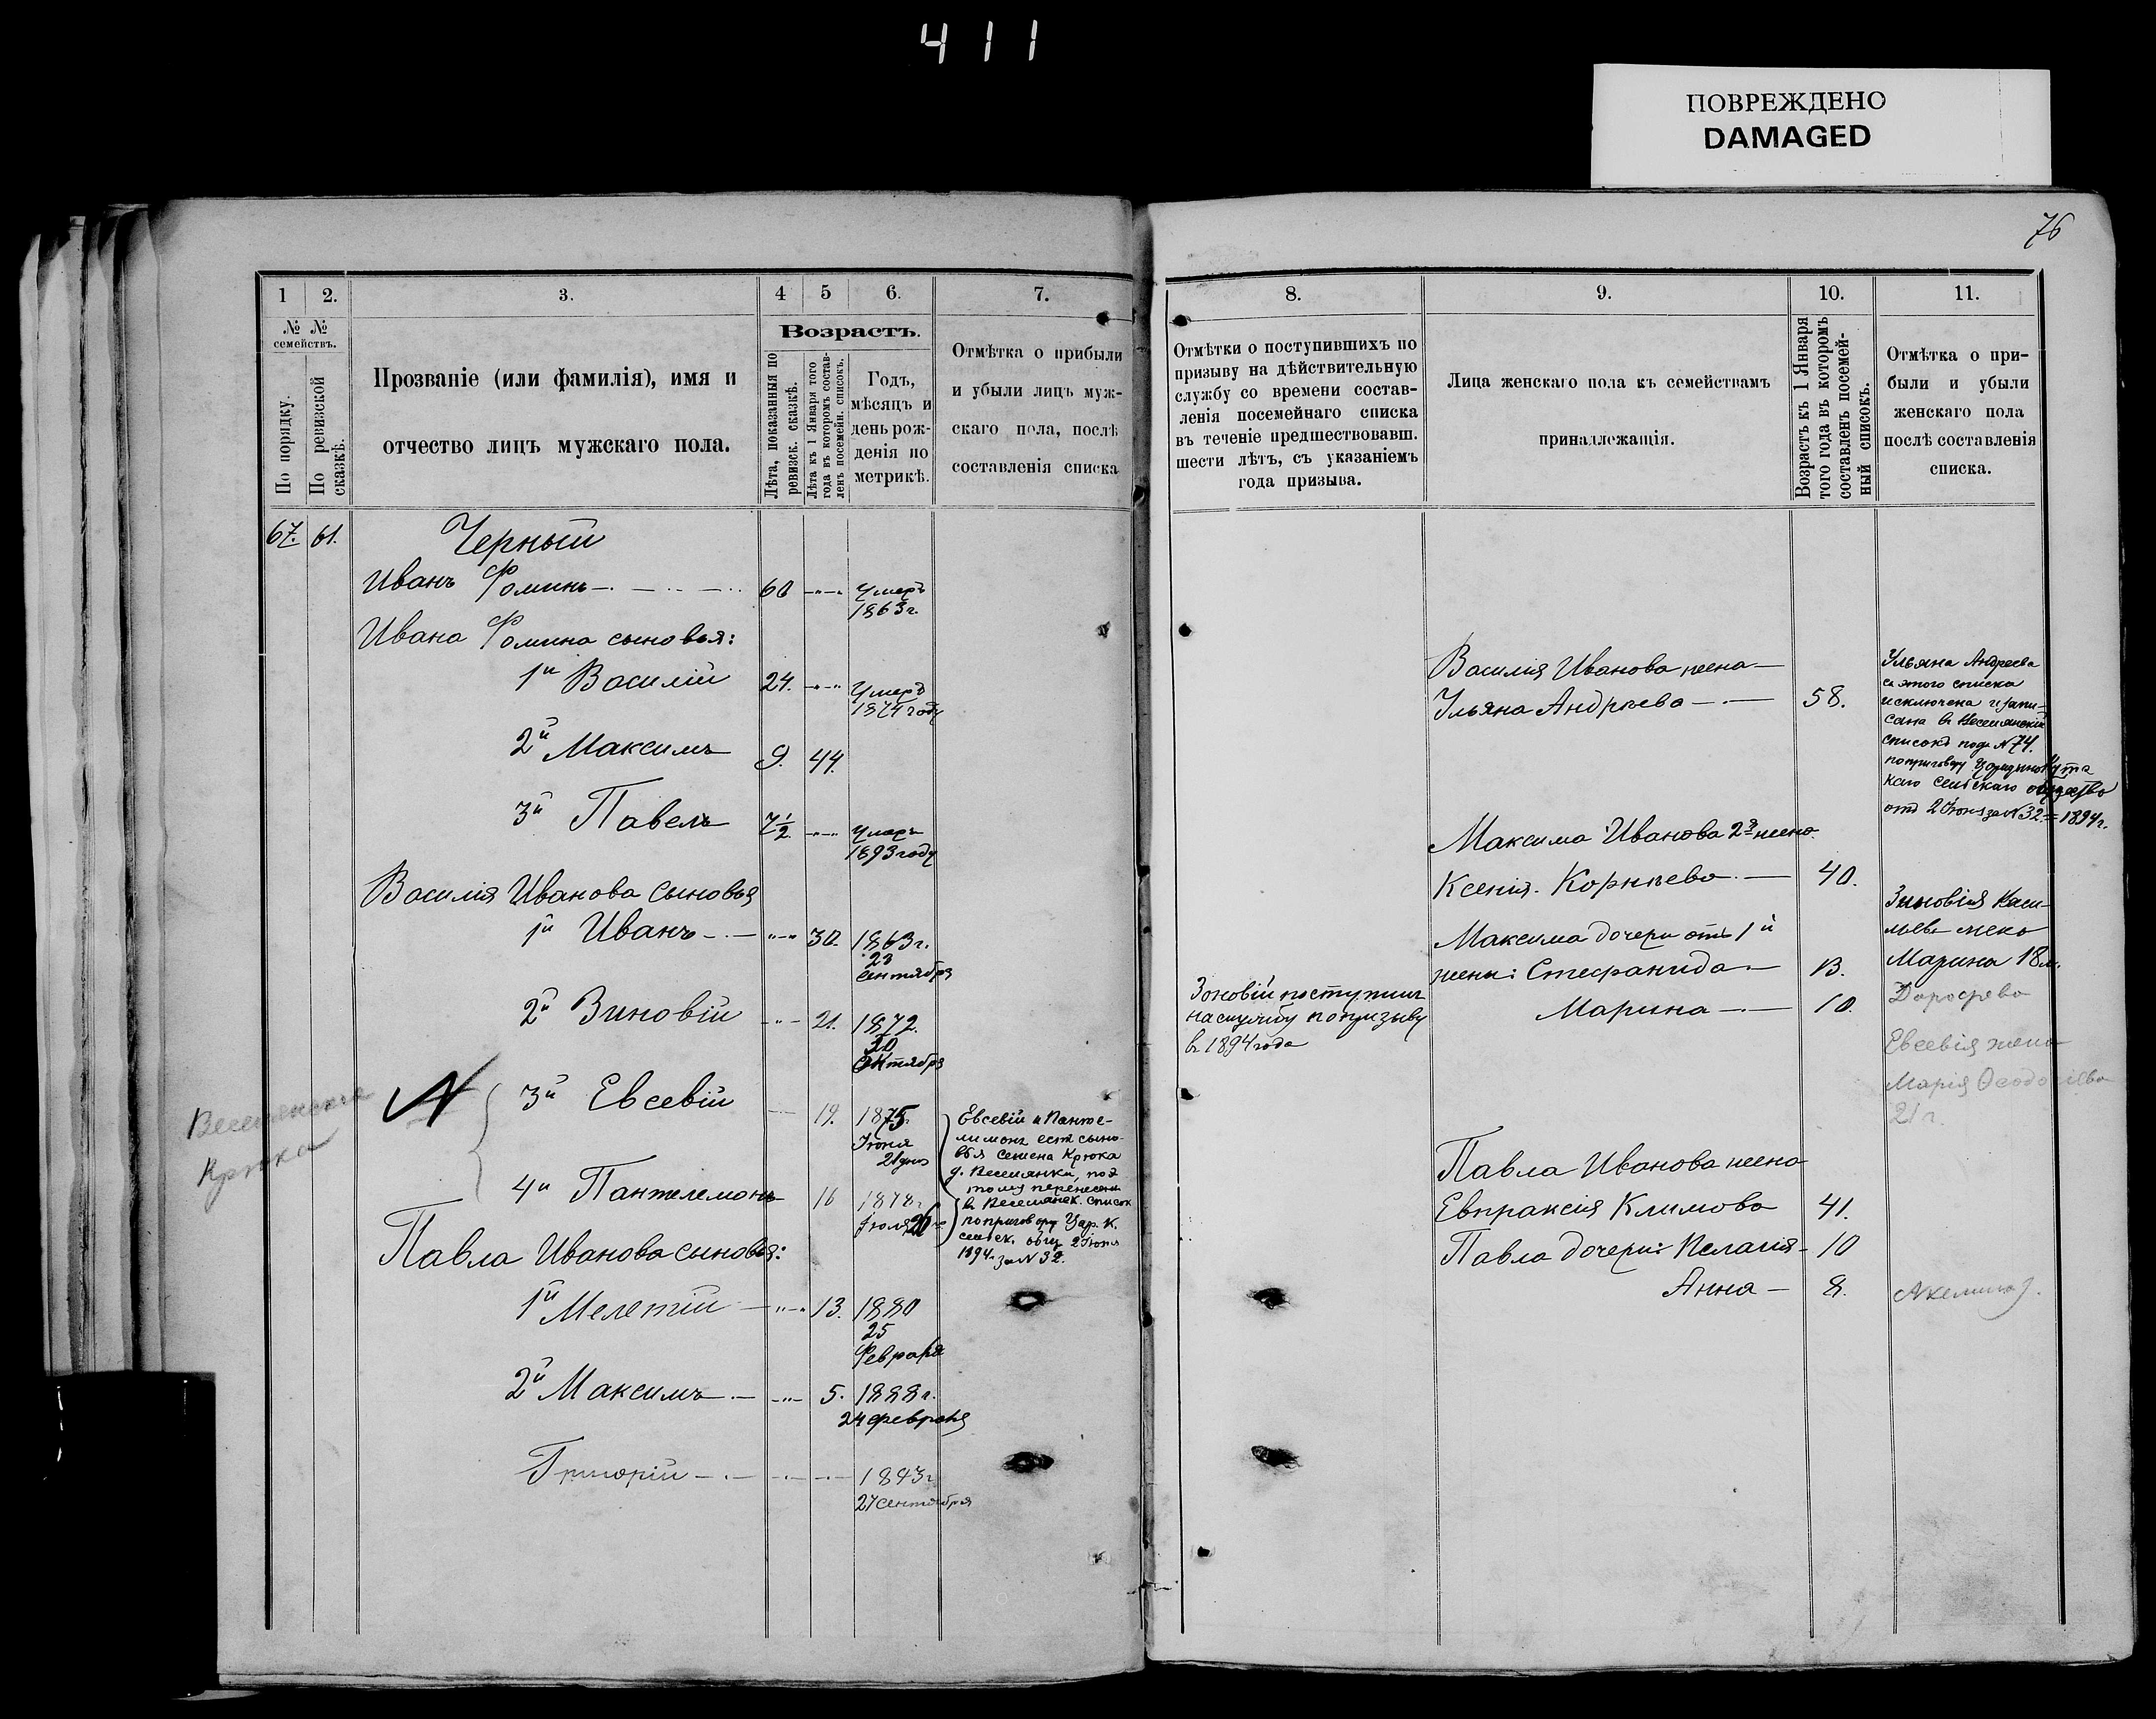 411
ПОВРЕЖДЕНО
DAMAGED
76
1
2.
3.
4
5
6.
7.
№ №
семействъ.
По порядку.
По ревизской
сказкѣ.
Прозваніе (или фамилія), имя и
отчество лицъ мужскаго пола.
Возрастъ.
Лѣта, показанныя по
ревизск. сказкѣ.
Лѣта къ 1 Января того
года въ которомъ состав-
ленъ посемейн. списокъ.
Годъ,
мѣсяцъ и
день рож-
денія по
метрикѣ.
Отмѣтка о прибыли
и убыли лицъ муж-
скаго пола, послѣ
составленія списка
8.
9.
10.
11.
Отмѣтки о поступившихъ по
призыву на дѣйствительную
службу со времени состав-
ленія посемейнаго списка
въ теченіе предшествовавш.
шести лѣтъ, съ указаніемъ
года призыва.
Лица женскаго пола къ семействамъ
принадлежащія.
Возрастъ къ 1 Января
того года въ которомъ
составленъ посемей-
ный списокъ.
Отмѣтка о при-
были и убыли
женскаго пола
послѣ составленія
списка.
67. 61. Черный
Иванъ Фоминъ 60 Умеръ
1863 г.
Ивана Фомина сыновья:
1й Василій 24. Умеръ
1874 году
2й Максимъ 9. 44.
3й Павелъ 7½ Умеръ
1893 году
Василія Иванова сыновья
1й Иванъ 30. 1863 г.
23
сентября
2й Зиновій 21. 1872.
30
Октября
3й Евсевій 19. 1875.
Іюня
21 дня
4й Пантелемонъ 16 1878 г.
Іюля 26
Веселянскаго
Крюка
Евсевій и Панте-
лимонъ есть сыно-
вья Семена Крюка
д. Веселянки, по
тому перенесены
въ Веселянск. список
по приговору Цар. К.
сельск. общ. 2 Іюня
1894 за N 32.
Павла Иванова сыновья:
1й Мелетій 13. 1880
25
Февраля
2й Максимъ 5. 1888 г.
24 февраля
Григорій 1893 г
27 сентября
Зоновій поступилъ
на службу по призыву
въ 1894 года
Василія Иванова жена
Ульяна Андреева 58.
Максима Иванова 2я жена
Ксенія Корнѣева 40.
Максима дочери отъ 1й
жены: Стефанида 13.
Марина 10.
Павла Иванова жена
Евпраксія Климова 41.
Павла дочери: Пелагія 10
Анна 8.
Ульяна Андреева
съ этого списка
исключена и запи-
сана въ Веселянскій
списокъ подъ N 74.
по приговору
каго сельскаго общества
отъ 2 Іюня за N 32 = 1894 г.
Зиновія Васи-
льев жена
Марина 18 л.
Дорофева
Евсевія жена
Марія Ѳеодосіева
21 г.